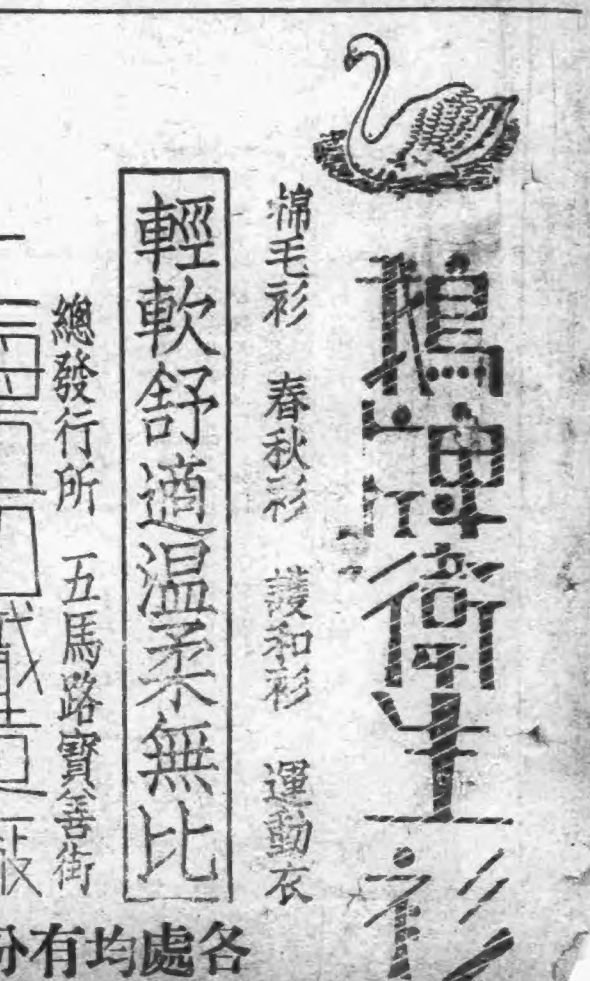 鵝牌衛生衫
棉毛衫 春秋衫 護和衫 運動衣
輕軟舒適溫柔無比
總發行所 五馬路寶善街
各處均有